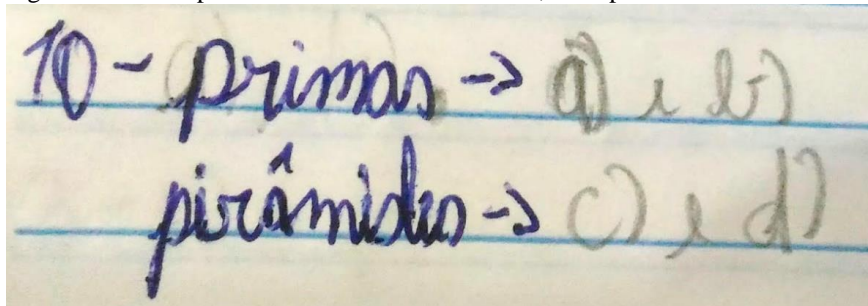 10 - primas -> a) e b)
pirâmides -> c) e d)